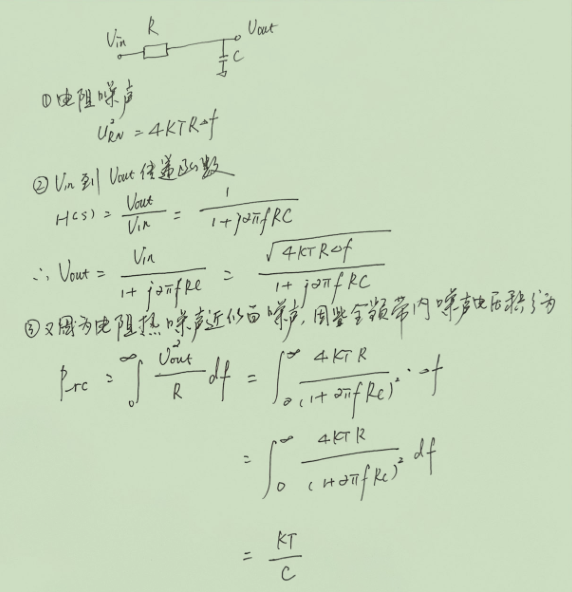 Vin R Vout
C
①电阻噪声
U²RN = 4KTRΔf
② Vin 到 Vout 传递函数
H(s) = Vout/Vin = 1/(1+j2πfRC)
∴ Vout = Vin/(1+j2πfRC) = √(4KTRΔf)/(1+j2πfRC)
③又因为电阻热噪声近似白噪声,因此全频带内噪声电压积分为
Prc = ∫₀^∞ U²out/R df = ∫₀^∞ 4KTR/(1+2πfRC)² · Δf
= ∫₀^∞ 4KTR/(1+2πfRC)² df
= KT/C